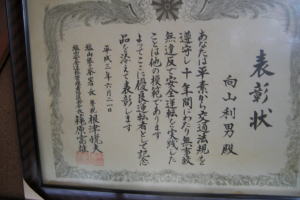 表彰状
向山利男殿
あなたは平素から交通法規を
遵守し十年間にわたり無事故
無違反で安全運転を実践した
ことは他の模範であります
よってここに優良運転者として記念
品を添えて表彰します
平成三年六月二日
塩山警察署長
根津
篠原富雄